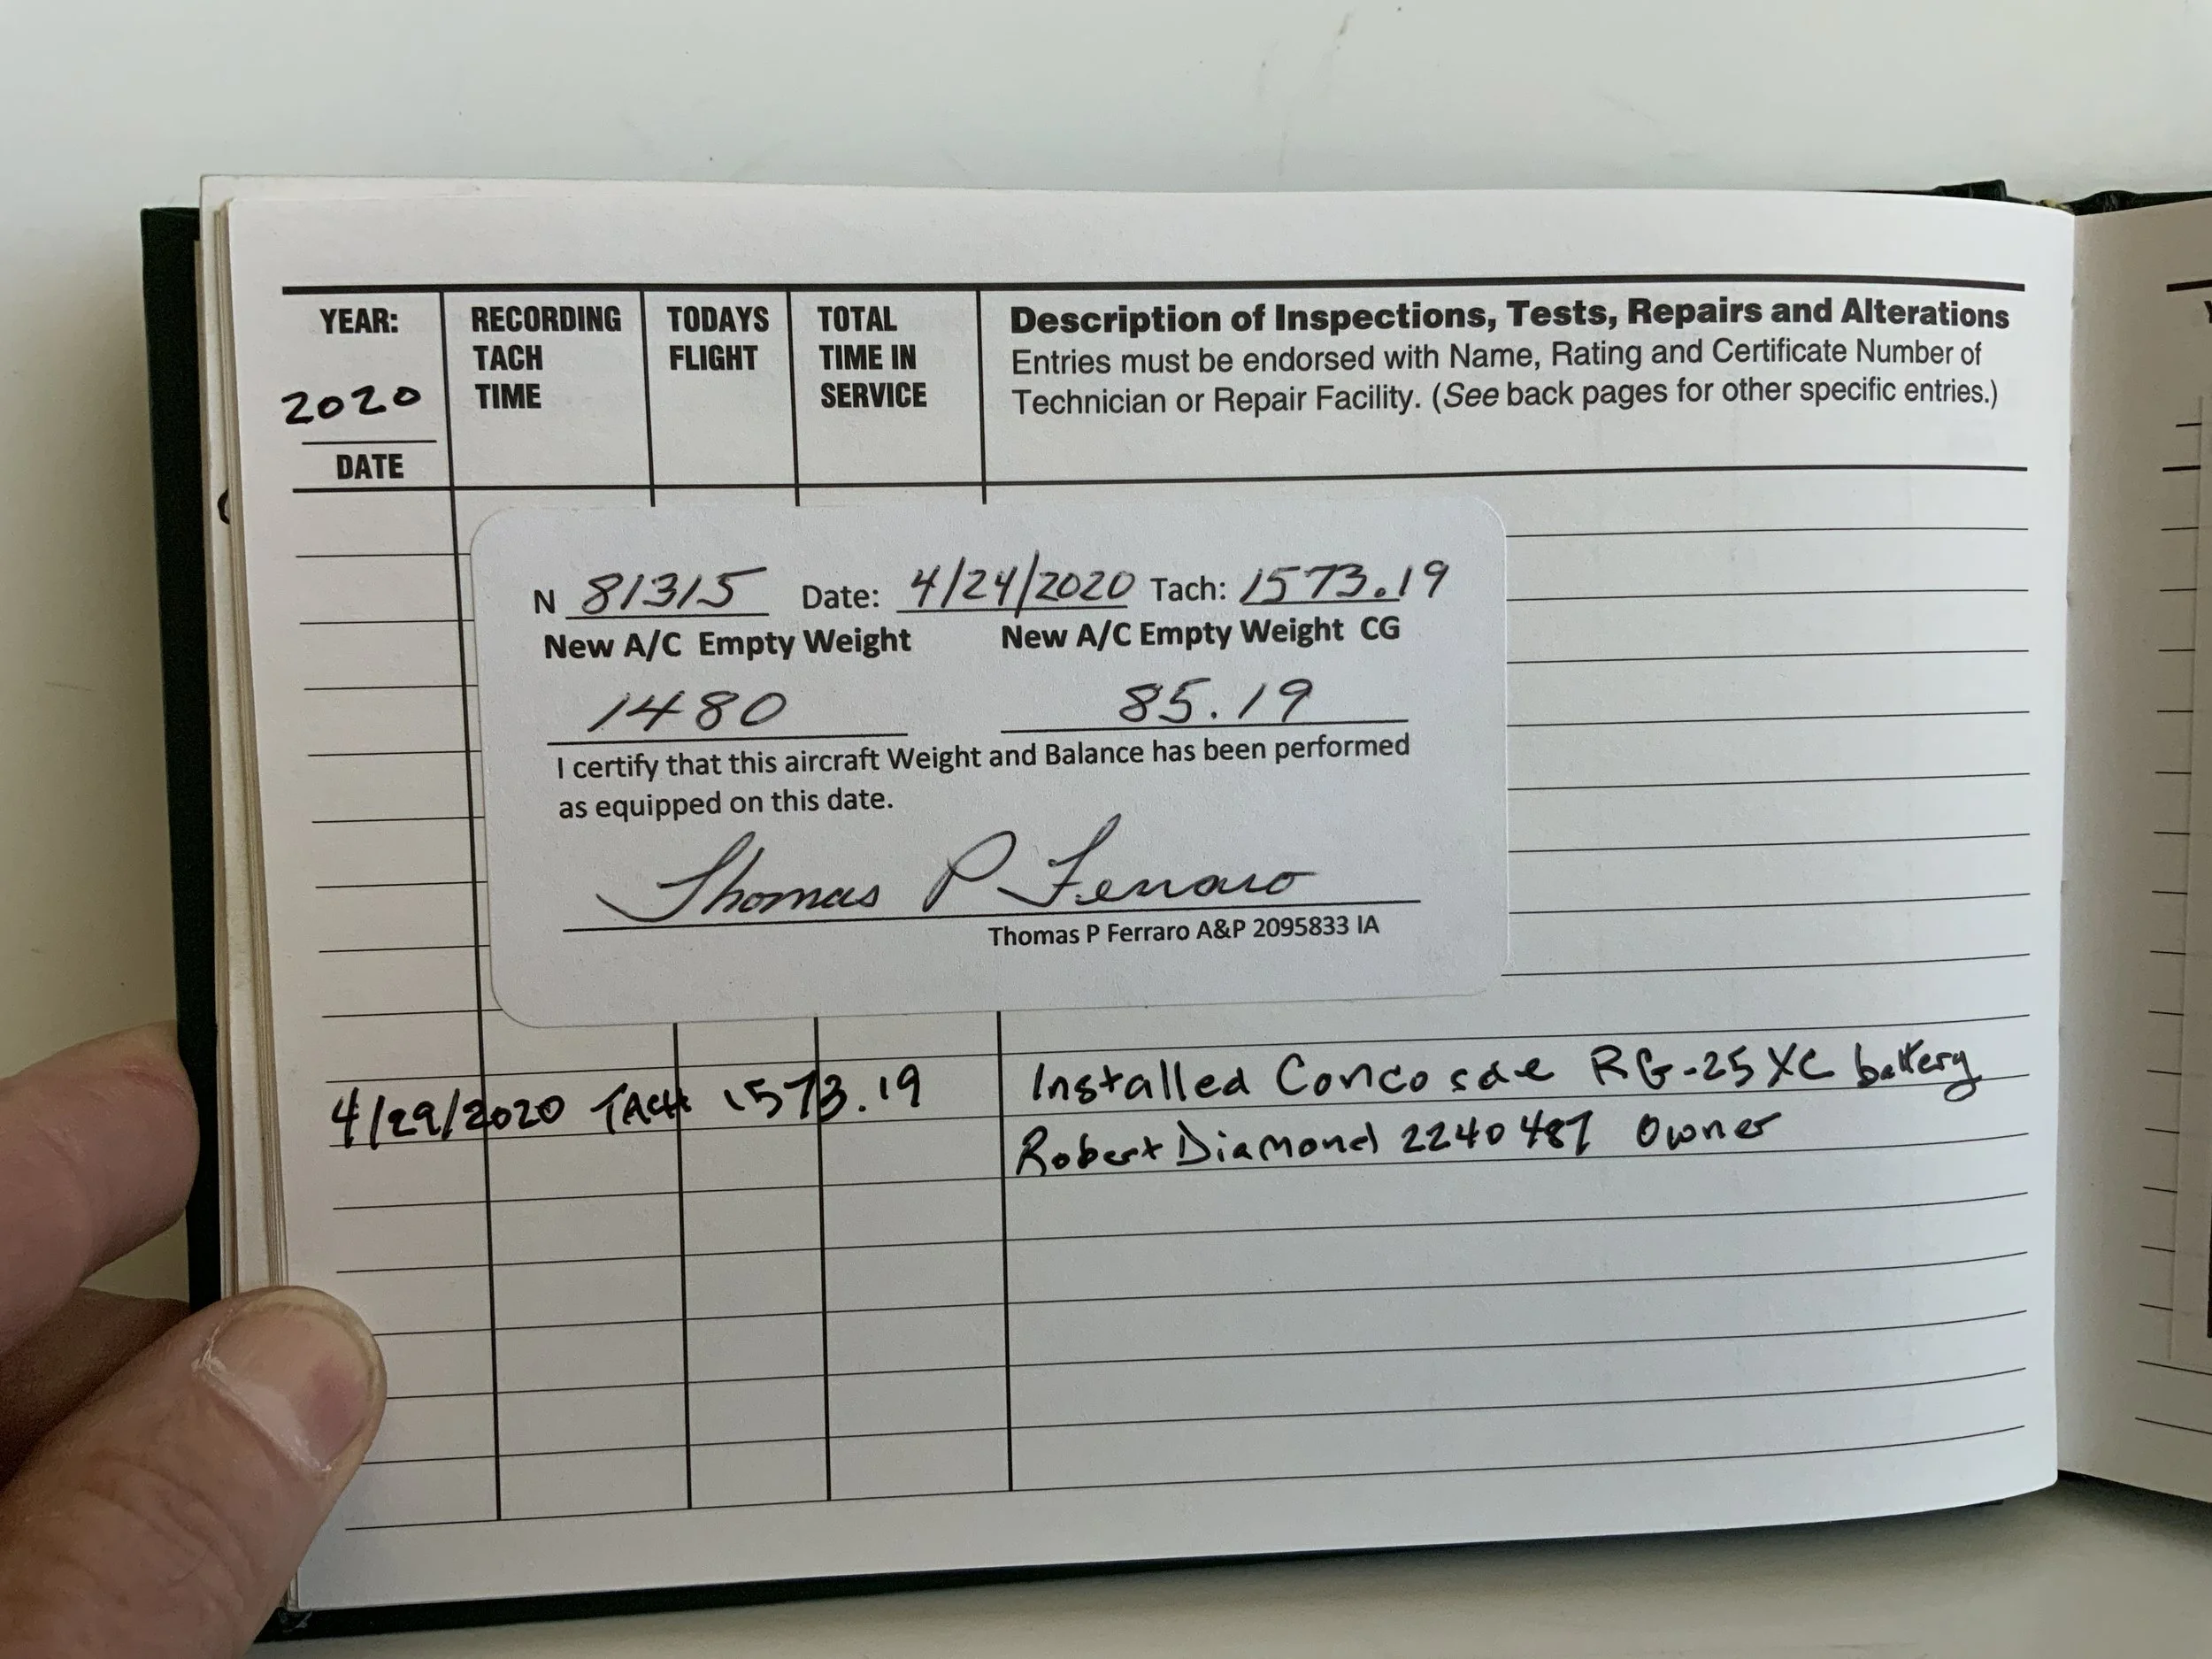 YEAR:
2020
DATE
RECORDING
TACH
TIME
TODAYS
FLIGHT
TOTAL
TIME IN
SERVICE
Description of Inspections, Tests, Repairs and Alterations
Entries must be endorsed with Name, Rating and Certificate Number of
Technician or Repair Facility. (See back pages for other specific entries.)
N 81315 Date: 4/24/2020 Tach: 1573.19
New A/C Empty Weight New A/C Empty Weight CG
1480 85.19
I certify that this aircraft Weight and Balance has been performed
as equipped on this date.
Thomas P Ferraro
Thomas P Ferraro A&P 2095833 IA
4/29/2020 TACH 1573.19 Installed Concosde RG-25XC battery
Robert Diamond 2240487 Owner